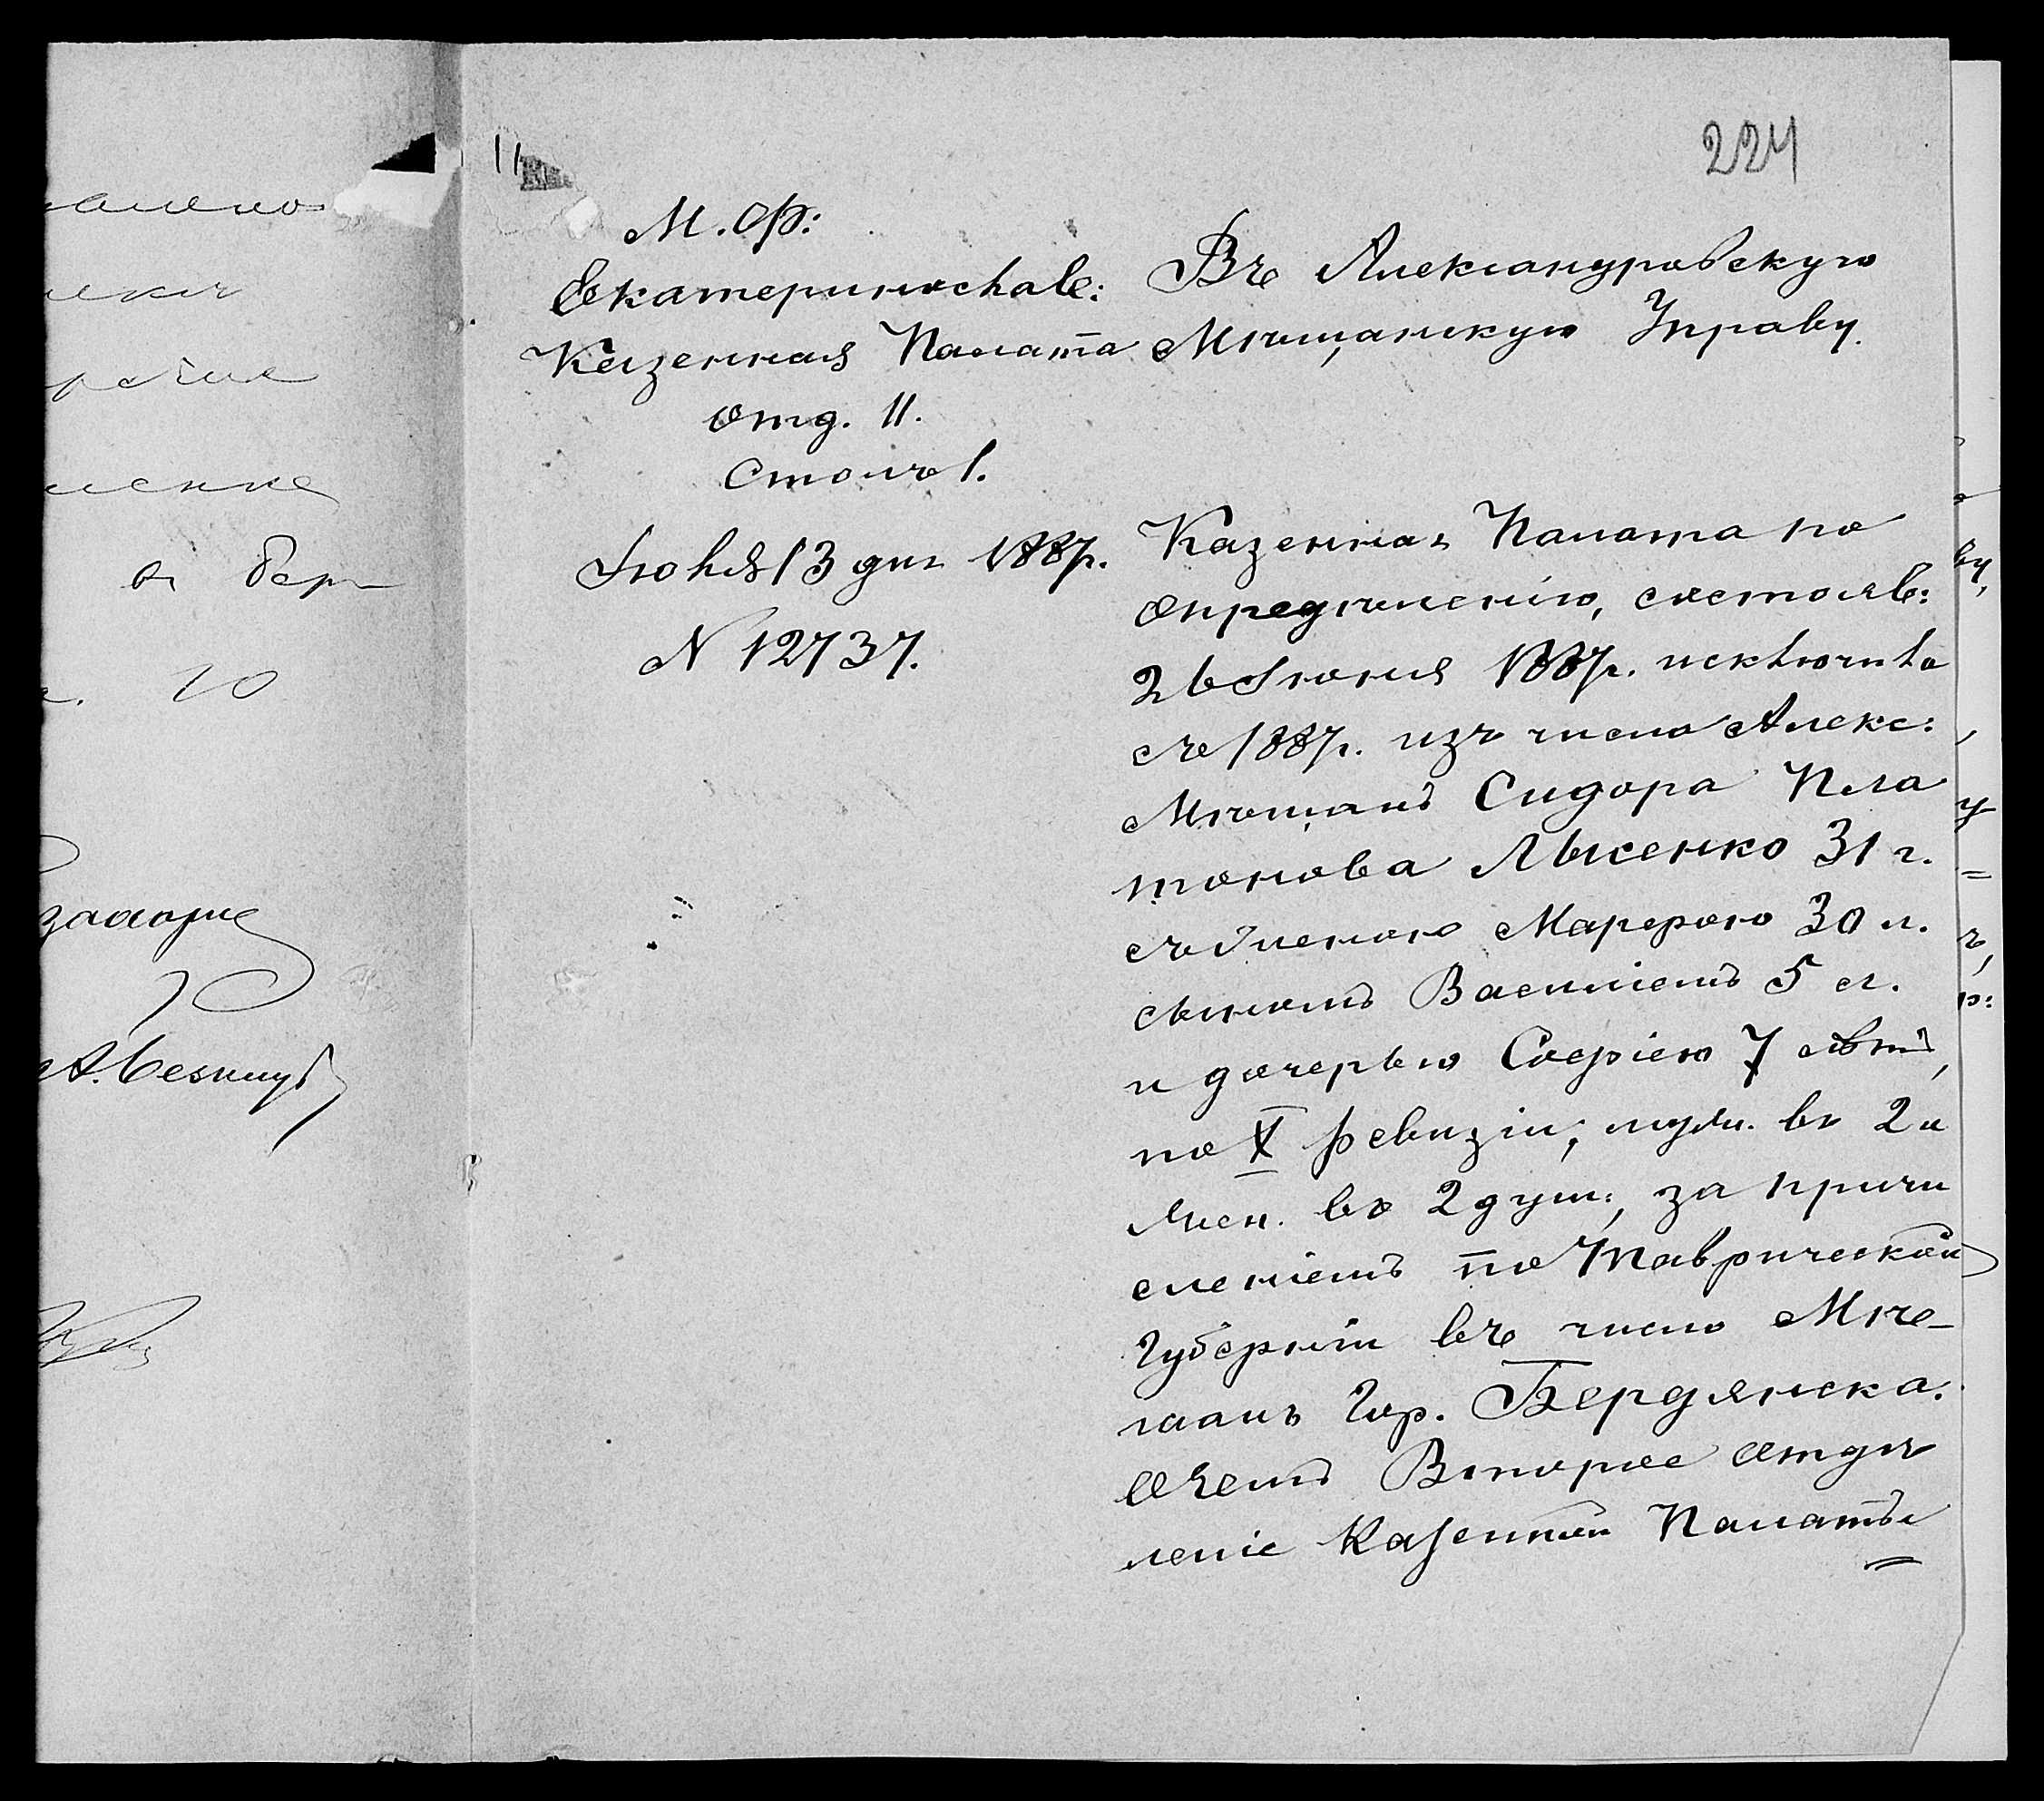 224
М. Ф:
Екатеринослав:
Казенная Палата
Отд. II.
Столъ 1.
Іюня 13 дня 1887г.
N 12737.
Въ Александровскую
Мѣщанскую Управу.
Казенная Палата по
опредѣленію, состояв:
Іюня 1887г. исключила
съ 1887г. изъ числа Алекс:
Мѣщанъ Сидора Пла
тонова Лысенко 31 г.
съ женою Марфою 30 л.
сыномъ Василіемъ 5 л.
и дочерью Софіею 7 лѣтъ,
по X ревизіи, муж. въ 2 и
жен. въ 2 душ:, за причи
сленіемъ по Таврической
Губерніи въ число Мѣ-
щанъ Гор. Бердянска.
О чемъ Второе Отдѣ
леніе Казенной Палаты